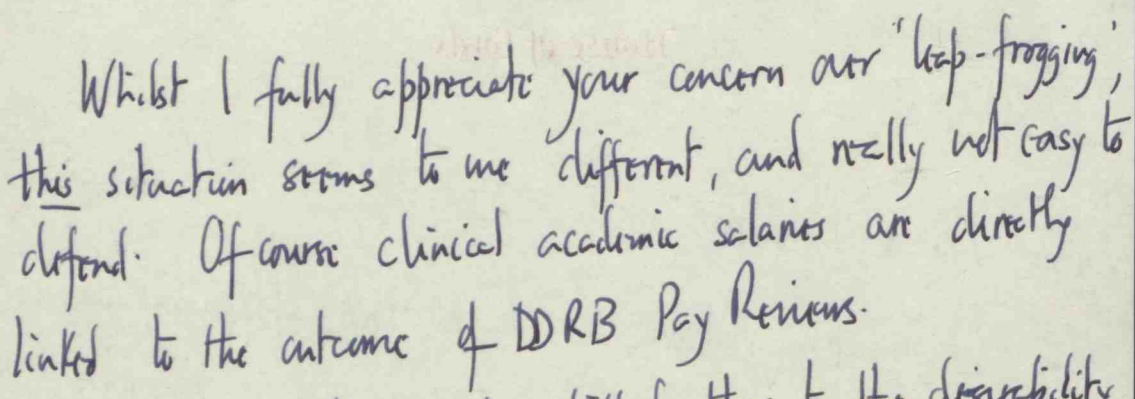 Whilst I fully appreciate your concern over 'leap-frogging',
this situation seems to me different, and really not easy to
defend. Of course clinical academic salaries are directly
linked to the outcome of DDRB Pay Reviews.
to the desirability